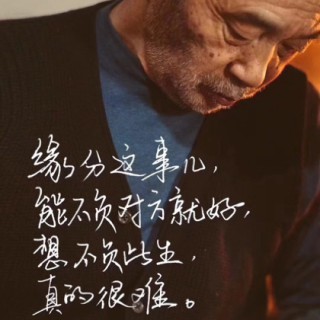 缘分这事儿，
能不负对方就好，
想不负此生，
真的很难。